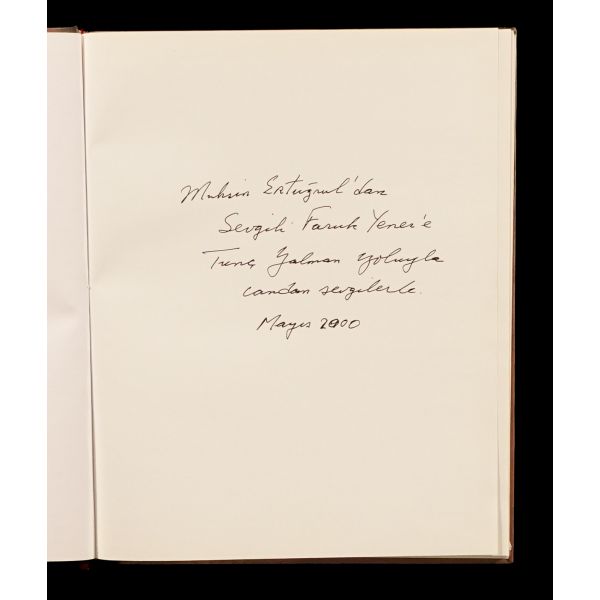 Muhsin Ertuğrul'dan
Sevgili Faruk Yener'e
Tunç Yalman yoluyla
candan sevgilerle.
Mayıs 2000